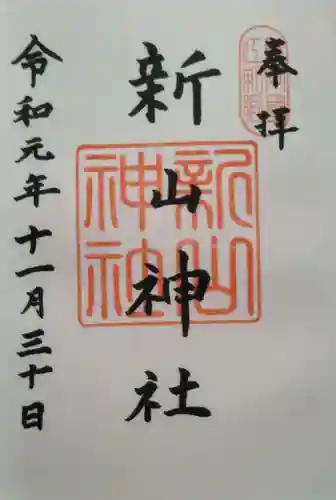 奉拝
新山神社
新山
神社
令和元年十一月三十日